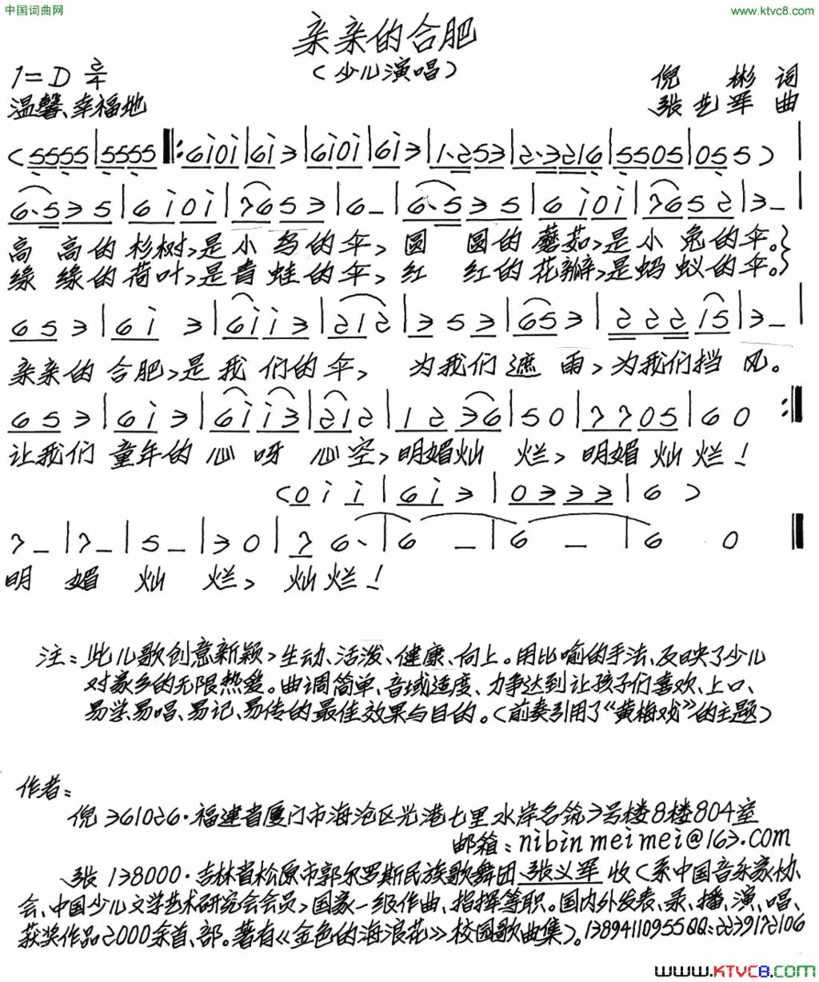 中国词曲网
www.ktvc8.com
亲亲的合肥
(少儿演唱)
1=D 2/4
倪 彬 词
温馨、幸福地
张艺军 曲
(5555|5555‖:6i0i|6i3|6i0i|6i3|1·253|2·3216|5505|055)|
6·535|6i0i|7653|6–|6·535|6i0i|7652|3–|
高 高的杉树,是小鸟的伞,圆 圆的蘑菇,是小兔的伞。
缘 缘的荷叶,是青蛙的伞,红 红的花瓣,是蚂蚁的伞。
653|6i 3|6ii3|212|353|653|22215|3–|
亲亲的合肥,是我们的伞, 为我们遮雨,为我们挡风。
653|6i3|6ii3|212|1236|50|7705|60:‖
让我们童年的心呀心空,明媚灿 烂,明媚灿烂!
(0ii|6i3|0333|6)
7–|7–|5–|30|76·|6–|6–|6 0‖
明 媚 灿 烂,灿烂!
注:此儿歌创意新颖,生动、活泼、健康、向上。用比喻的手法、反映了少儿
对家乡的无限热爱。曲调简单、音域适度、力争达到让孩子们喜欢、上口、
易学、易唱、易记、易传的最佳效果与目的。(前奏引用了“黄梅戏”的主题)
作者:
倪 361026·福建省厦门市海沧区光港七里水岸名筑3号楼8楼804室
邮箱:nibinmeimei@163.com
张 138000·吉林省松原市郭尔罗斯民族歌舞团 张义军 收(系中国音乐家协
会、中国少儿文学艺术研究会会员,国家一级作曲、指挥等职。国内外发表、录、播、演、唱、
获奖作品2000余首、部。著有《金色的海浪花》校园歌曲集)。13894110955QQ:2239172106
www.KTVC8.com